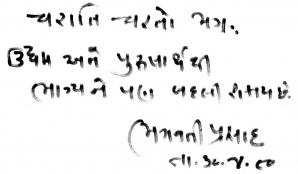 ચરાતિ ચરતો ભગ:
ઉદ્યમ અને પુરુષાર્થથી
ભાગ્યને પણ બદલી શકાય છે.
ભગવતી પ્રસાદ
તા. ૩૦.૪.૯૦